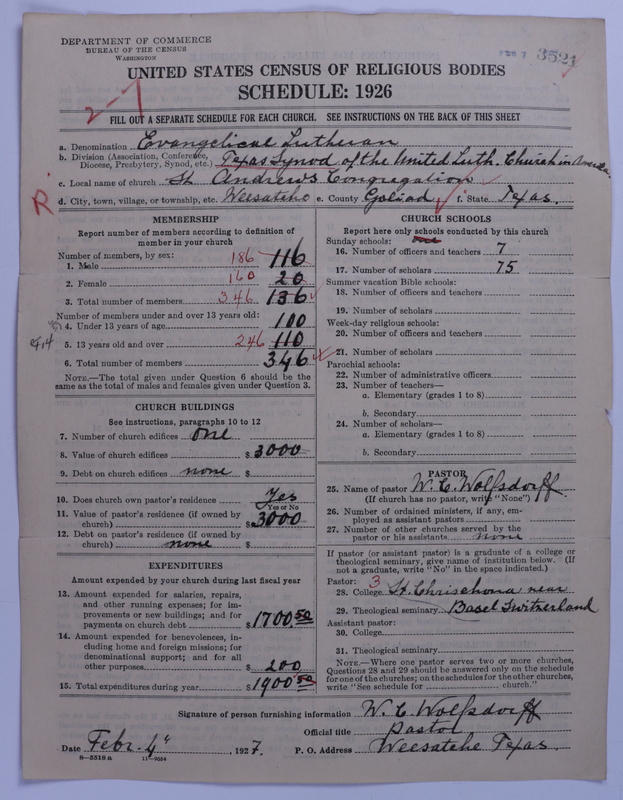 DEPARTMENT OF COMMERCE
BUREAU OF THE CENSUS
WASHINGTON
FEB 7 3521
UNITED STATES CENSUS OF RELIGIOUS BODIES
SCHEDULE: 1926
2-7
FILL OUT A SEPARATE SCHEDULE FOR EACH CHURCH. SEE INSTRUCTIONS ON THE BACK OF THIS SHEET
a. Denomination Evangelical Lutheran
b. Division (Association, Conference, Diocese, Presbytery, Synod, etc.) Texas Synod of the United Luth. Church in America
c. Local name of church St Andrews Congregation
R
d. City, town, village, or township, etc. Weesatche e. County Goliad f. State Texas.
MEMBERSHIP
Report number of members according to definition of
member in your church
Number of members, by sex:
1. Male 186 116
2. Female 160 20
3. Total number of members 346 136
Number of members under and over 13 years old:
4. Under 13 years of age 100
5. 13 years old and over 246 110
6. Total number of members 346
NOTE.—The total given under Question 6 should be the
same as the total of males and females given under Question 3.
CHURCH BUILDINGS
See instructions, paragraphs 10 to 12
7. Number of church edifices one
8. Value of church edifices $ 3000
9. Debt on church edifices none $
10. Does church own pastor's residence Yes
Yes or No
11. Value of pastor's residence (if owned by
church) $ 3000
12. Debt on pastor's residence (if owned by
church) none $
EXPENDITURES
Amount expended by your church during last fiscal year
13. Amount expended for salaries, repairs,
and other running expenses; for im-
provements or new buildings; and for
payments on church debt $ 1700.50
14. Amount expended for benevolences, in-
cluding home and foreign missions; for
denominational support; and for all
other purposes $ 200
15. Total expenditures during year $ 1900.50
CHURCH SCHOOLS
Report here only schools conducted by this church
Sunday schools:
16. Number of officers and teachers 7
17. Number of scholars 75
Summer vacation Bible schools:
18. Number of officers and teachers
19. Number of scholars
Week-day religious schools:
20. Number of officers and teachers
21. Number of scholars
Parochial schools:
22. Number of administrative officers
23. Number of teachers—
a. Elementary (grades 1 to 8)
b. Secondary
24. Number of scholars—
a. Elementary (grades 1 to 8)
b. Secondary
PASTOR
25. Name of pastor W. C. Wolfsdorff
(If church has no pastor, write "None")
26. Number of ordained ministers, if any, em-
ployed as assistant pastors
27. Number of other churches served by the
pastor or his assistants none
If pastor (or assistant pastor) is a graduate of a college or
theological seminary, give name of institution below. (If
not a graduate, write "No" in the space indicated.)
Pastor: 3
28. College St. Chrischona near
29. Theological seminary Basel Switzerland
Assistant pastor:
30. College
31. Theological seminary
NOTE.—Where one pastor serves two or more churches,
Questions 28 and 29 should be answered only on the schedule
for one of the churches; on the schedules for the other churches,
write "See schedule for church."
Signature of person furnishing information W. C. Wolfsdorff
Official title Pastor
Date Febr. 4th, 1927. P. O. Address Weesatche Texas.
8—5518a 11—9554